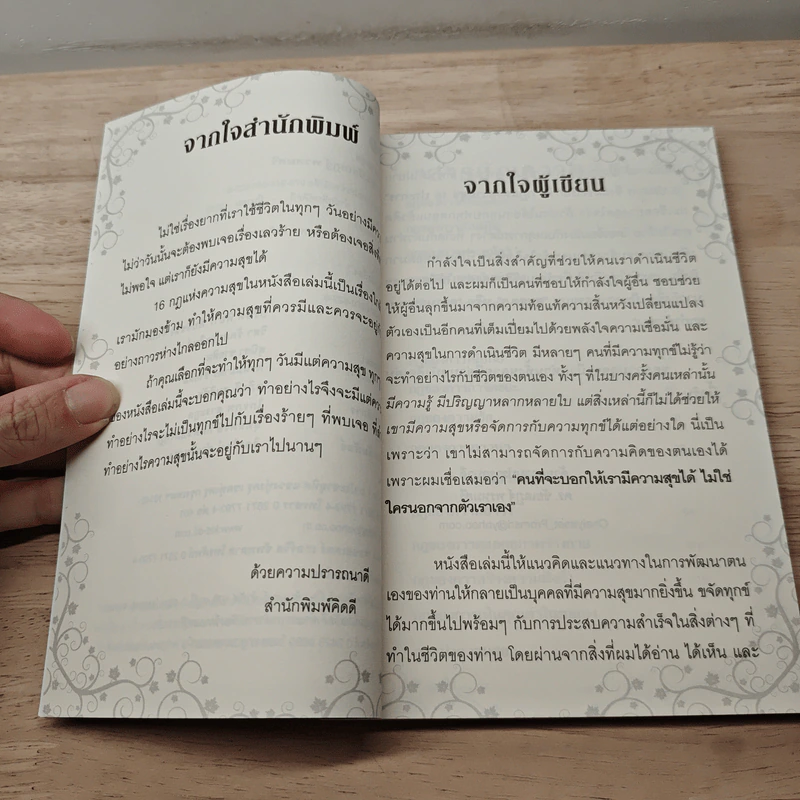 จากใจสำนักพิมพ์
ไม่ใช่เรื่องยากที่เราใช้ชีวิตในทุกๆ วันอย่างมี
ไม่ว่าวันนั้นจะต้องพบเจอเรื่องเลวร้าย หรือต้องเจอ
ไม่พอใจ แต่เราก็ยังมีความสุขได้
16 กฎแห่งความสุขในหนังสือเล่มนี้เป็นเรื่อง
เรามักมองข้าม ทำให้ความสุขที่ควรมีและควรจะอยู่
อย่างถาวรห่างไกลออกไป
ถ้าคุณเลือกที่จะทำให้ทุกๆ วันมีแต่ความสุข
ของหนังสือเล่มนี้จะบอกคุณว่า ทำอย่างไรจึงจะมีแต่
ทำอย่างไรจะไม่เป็นทุกข์ไปกับเรื่องร้ายๆ ที่พบเจอ
ทำอย่างไรความสุขนั้นจะอยู่กับเราไปนานๆ
ด้วยความปรารถนาดี
สำนักพิมพ์คิดดี
จากใจผู้เขียน
กำลังใจเป็นสิ่งสำคัญที่ช่วยให้คนเราดำเนินชีวิต
อยู่ได้ต่อไป และผมก็เป็นคนที่ชอบให้กำลังใจผู้อื่น ชอบช่วย
ให้ผู้อื่นลุกขึ้นมาจากความท้อแท้ความสิ้นหวังเปลี่ยนแปลง
ตัวเองเป็นอีกคนที่เต็มเปี่ยมไปด้วยพลังใจความเชื่อมั่น และ
ความสุขในการดำเนินชีวิต มีหลายๆ คนที่มีความทุกข์ไม่รู้ว่า
จะทำอย่างไรกับชีวิตของตนเอง ทั้งๆ ที่ในบางครั้งคนเหล่านั้น
มีความรู้ มีปริญญาหลากหลายใบ แต่สิ่งเหล่านี้ก็ไม่ได้ช่วยให้
เขามีความสุขหรือจัดการกับความทุกข์ได้แต่อย่างใด นี่เป็น
เพราะว่า เขาไม่สามารถจัดการกับความคิดของตนเองได้
เพราะผมเชื่อเสมอว่า “คนที่จะบอกให้เรามีความสุขได้ ไม่ใช่
ใครนอกจากตัวเราเอง”
หนังสือเล่มนี้ให้แนวคิดและแนวทางในการพัฒนาตน
เองของท่านให้กลายเป็นบุคคลที่มีความสุขมากยิ่งขึ้น ขจัดทุกข์
ได้มากขึ้นไปพร้อมๆ กับการประสบความสำเร็จในสิ่งต่างๆ ที่
ทำในชีวิตของท่าน โดยผ่านจากสิ่งที่ผมได้อ่าน ได้เห็น และ